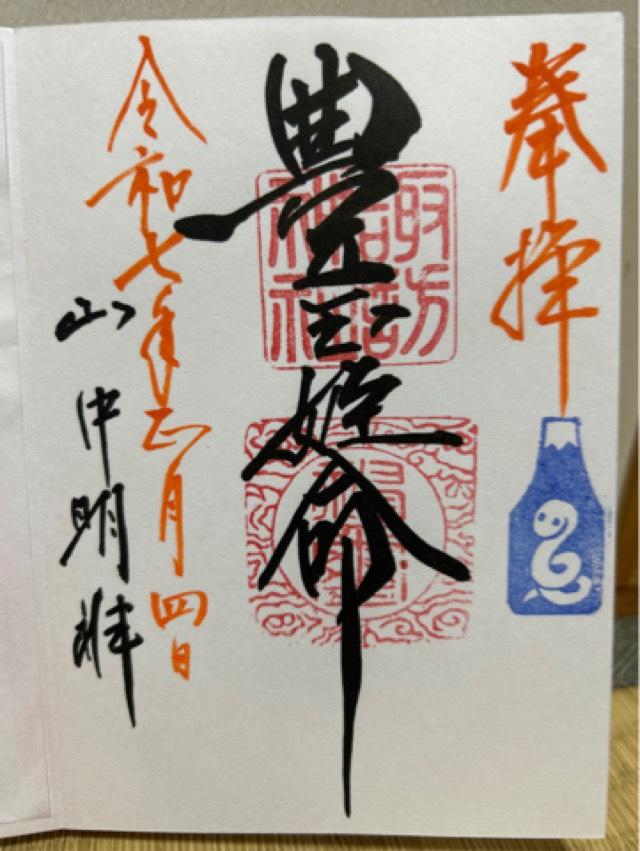 奉拝
豊玉姫命
諏訪神社
令和七年正月四日
山中明